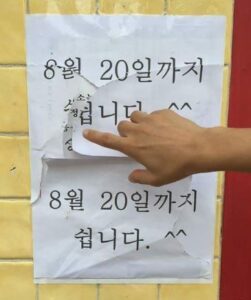 8월 20일까지
쉽니다. ^^
8월 20일까지
쉽니다. ^^